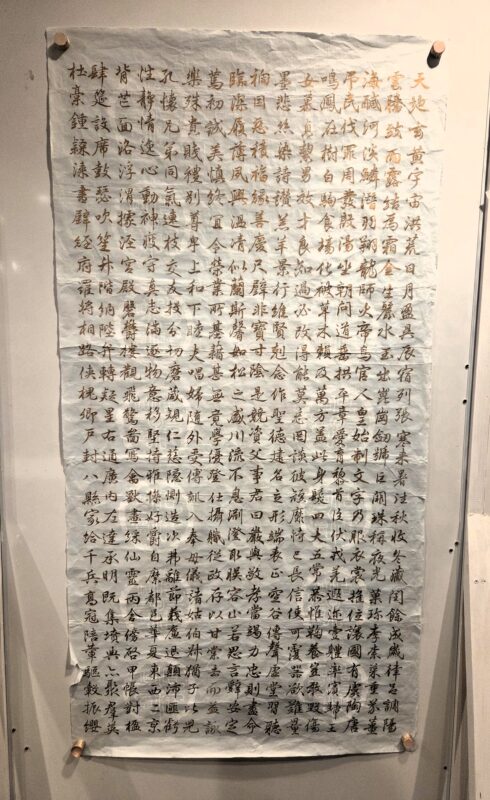 天地玄黃宇宙洪荒日月盈昃辰宿列張寒來暑往秋收冬藏閏餘成歲律呂調陽
雲騰致雨露結為霜金生麗水玉出崑岡劍號巨闕珠稱夜光菓珍李柰菜重芥薑
海鹹河淡鱗潛羽翔龍師火帝鳥官人皇始制文字乃服衣裳推位讓國有虞陶唐
弔民伐罪周發殷湯坐朝問道垂拱平章愛育黎首臣伏戎羌遐邇壹體率賓歸王
鳴鳳在樹白駒食場化被草木賴及萬方蓋此身髮四大五常恭惟鞠養豈敢毀傷
女慕貞絜男效才良知過必改得能莫忘罔談彼短靡恃己長信使可覆器欲難量
墨悲絲染詩讚羔羊景行維賢剋念作聖德建名立形端表正空谷傳聲虛堂習聽
禍因惡積福緣善慶尺璧非寶寸陰是競資父事君曰嚴與敬孝當竭力忠則盡命
臨深履薄夙興溫凊似蘭斯馨如松之盛川流不息淵澄取映容止若思言辭安定
篤初誠美慎終宜令榮業所基籍甚無竟學優登仕攝職從政存以甘棠去而益詠
樂殊貴賤禮別尊卑上和下睦夫唱婦隨外受傅訓入奉母儀諸姑伯叔猶子比兒
孔懷兄弟同氣連枝交友投分切磨箴規仁慈隱惻造次弗離節義廉退顛沛匪虧
性靜情逸心動神疲守真志滿逐物意移堅持雅操好爵自縻都邑華夏東西二京
背芒面洛浮渭據涇宮殿磐鬱樓觀飛驚圖寫禽獸畫綵仙靈丙舍傍啟甲帳對楹
肆筵設席鼓瑟吹笙升階納陛弁轉疑星右通廣內左達承明既集墳典亦聚群英
杜稾鍾隸漆書壁經府羅將相路俠槐卿戶封八縣家給千兵高冠陪輦驅轂振纓